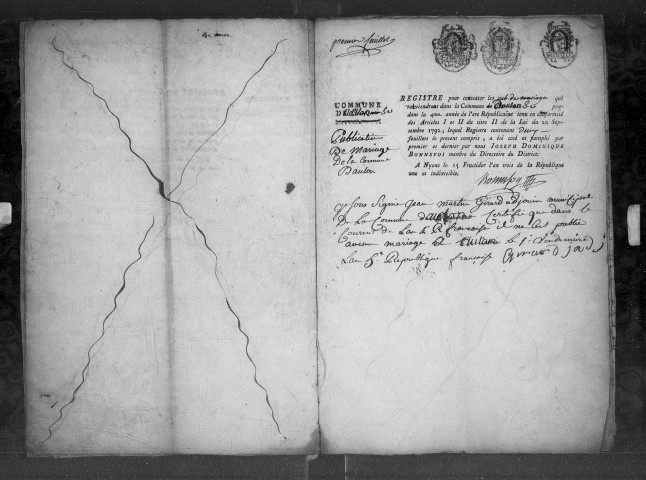 premier feuillet
COMMUNE
Publication
De mariage
De la Commune
Daulan
REGISTRE pour constater les de mariage qui
interviendront dans la Commune de Daulan pen-
dant la 4me. année de l'ere Républicaine tenu en conformité
des Articles I et II du titre II de la Loi du 20 Sep-
tembre 1792, lequel Registre contenant deux
feuillets le present compris, a été coté et paraphé par
premier et dernier par nous JOSEPH DOMINIQUE
BONNEFOI membre du Directoire du District.
A Nyons le 25 Fructidor l'an trois de la République
une et indivisible.
Bonnefoy
Je sous signé jean martin Girard adjoint municipal
De la Commune certifie que dans le
Courent de Lan 4 R francaise il ne cest publié
aucun mariage a aulan le 1er Vendemiaire
Lan 5e Republique francaise